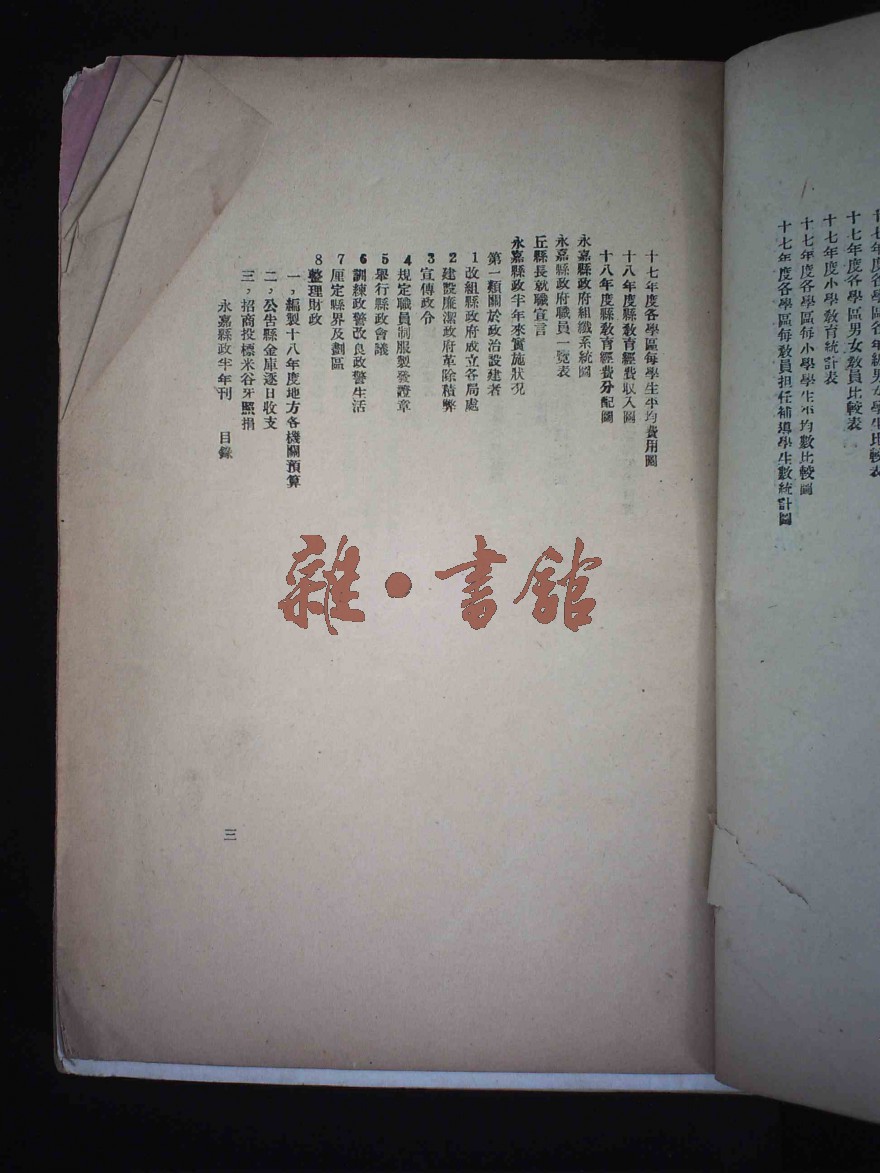 十七年度各學區男女教員比較表
十七年度小學教育統計表
十七年度各學區每小學學生平均數比較圖
十七年度各學區每教員担任補導學生數統計圖
十七年度各學區每學生平均費用圖
十八年度縣教育經費收入圖
十八年度縣教育經費分配圖
永嘉縣政府組織系統圖
永嘉縣政府職員一覽表
丘縣長就職宣言
永嘉縣政半年來實施狀况
第一類關於政治設建者
1改組縣政府成立各局處
2建設廉潔政府革除積弊
3宣傳政令
4規定職員制服製發證章
5舉行縣政會議
6訓練政警改良政警生活
7厘定縣界及劃區
8整理財政
一，編製十八年度地方各機關預算
二，公告縣金庫逐日收支
三，招商投標米谷牙照捐
永嘉縣政半年刊 目錄
三
雜·書館